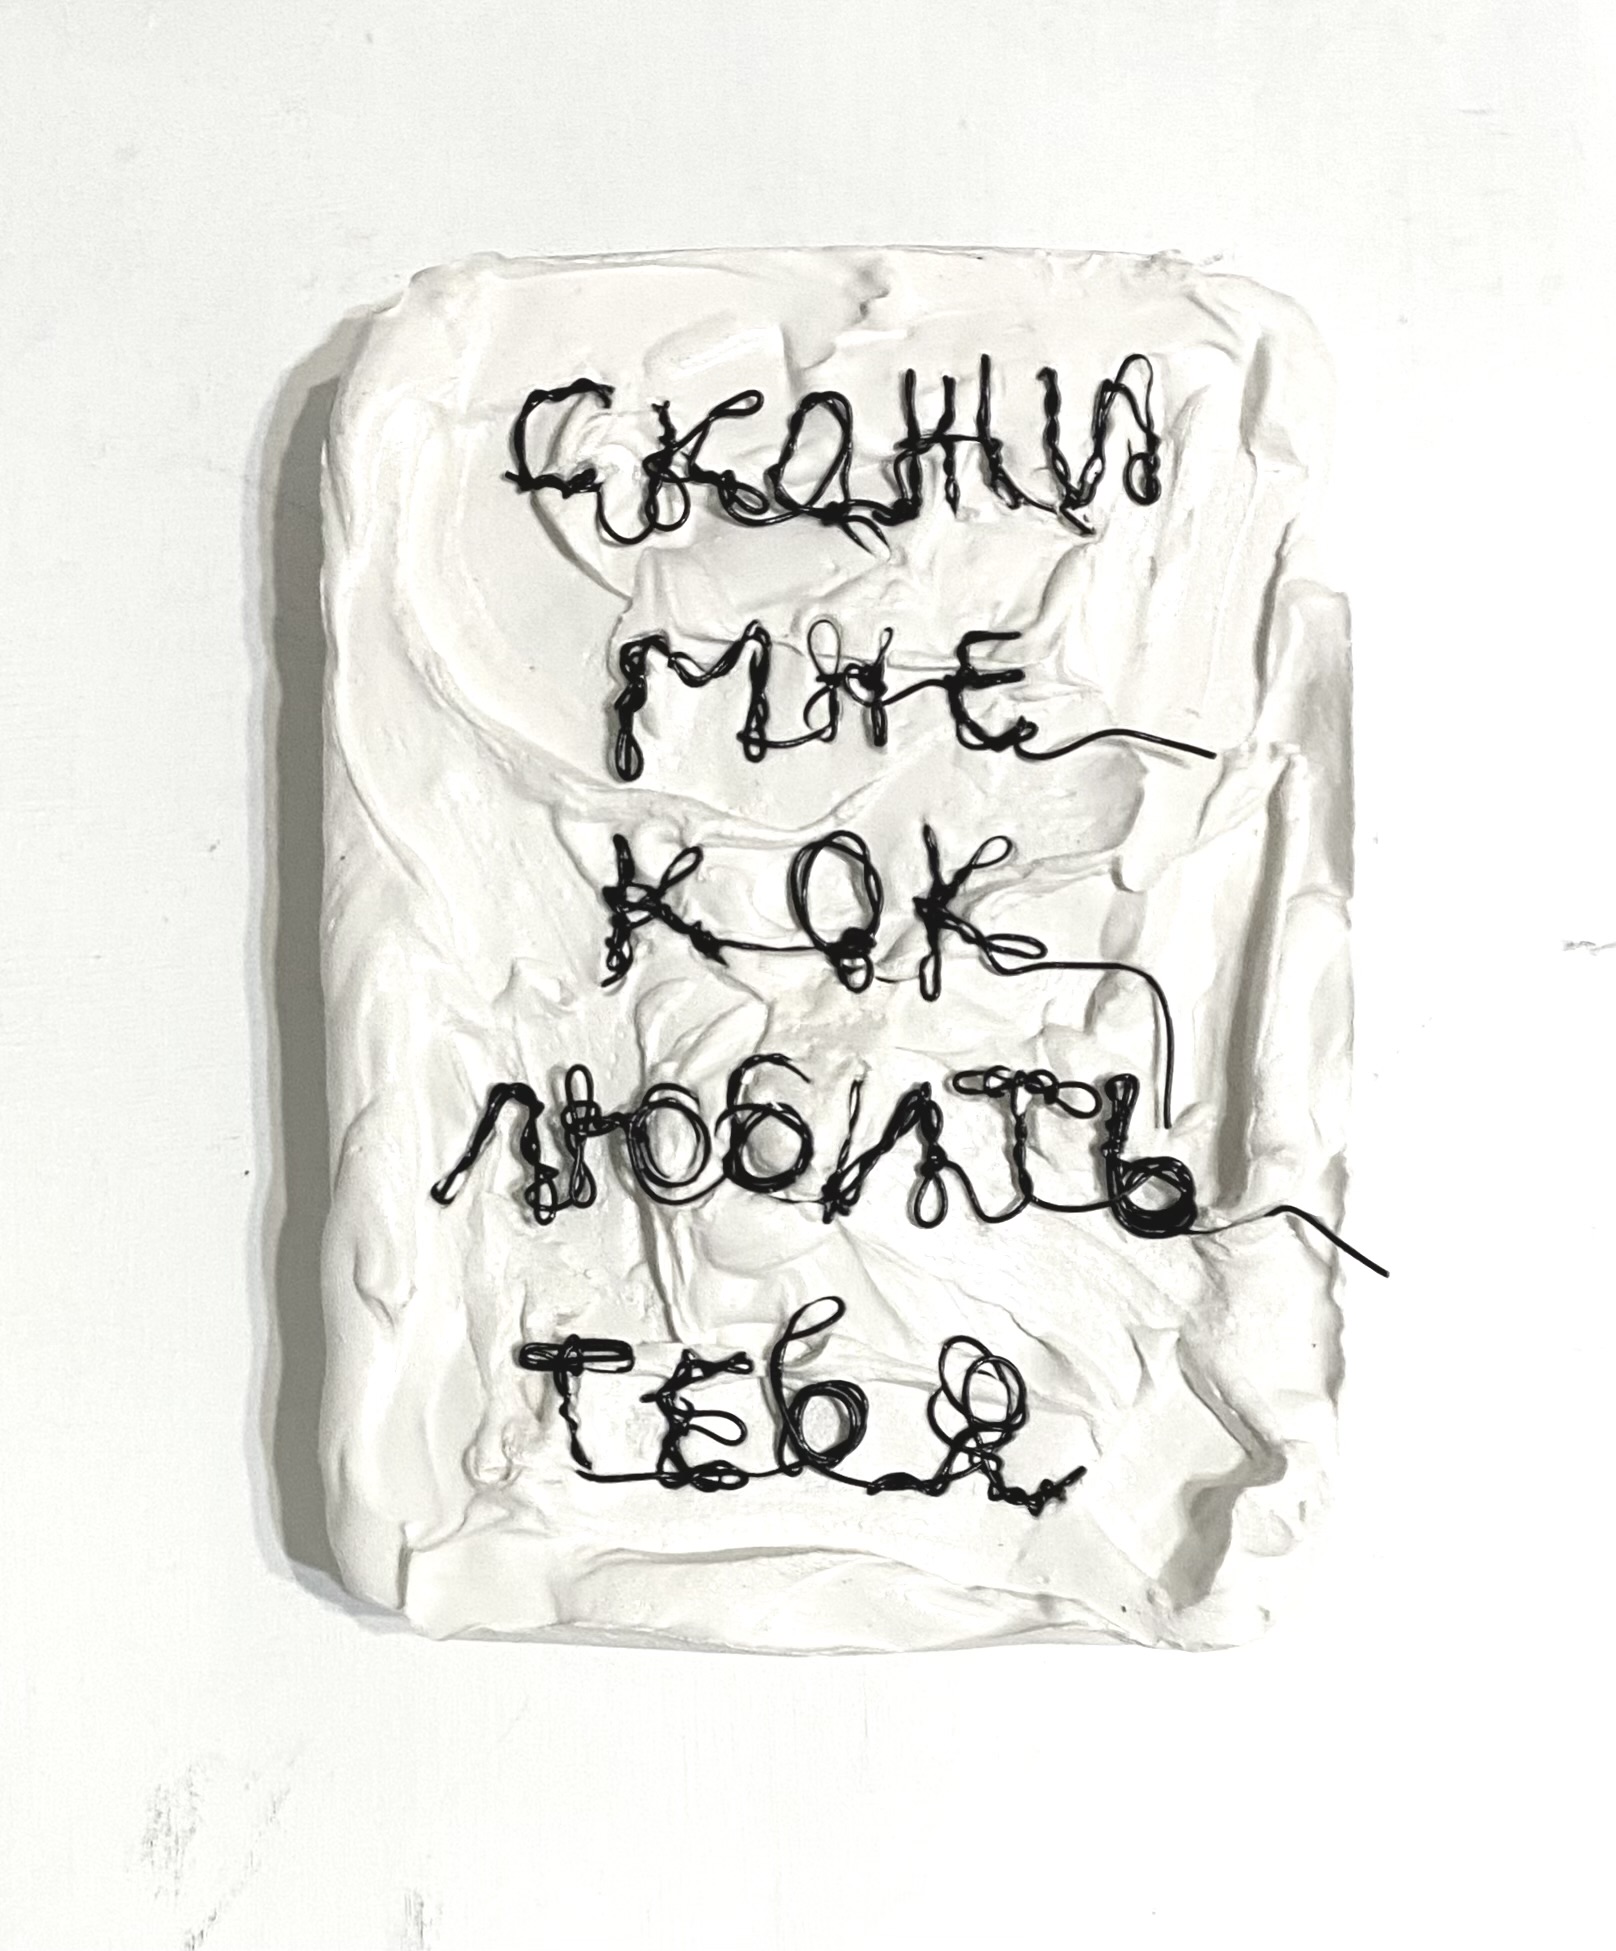 СКАЖИ
МНЕ
КАК
ЛЮБИТЬ
ТЕБЯ